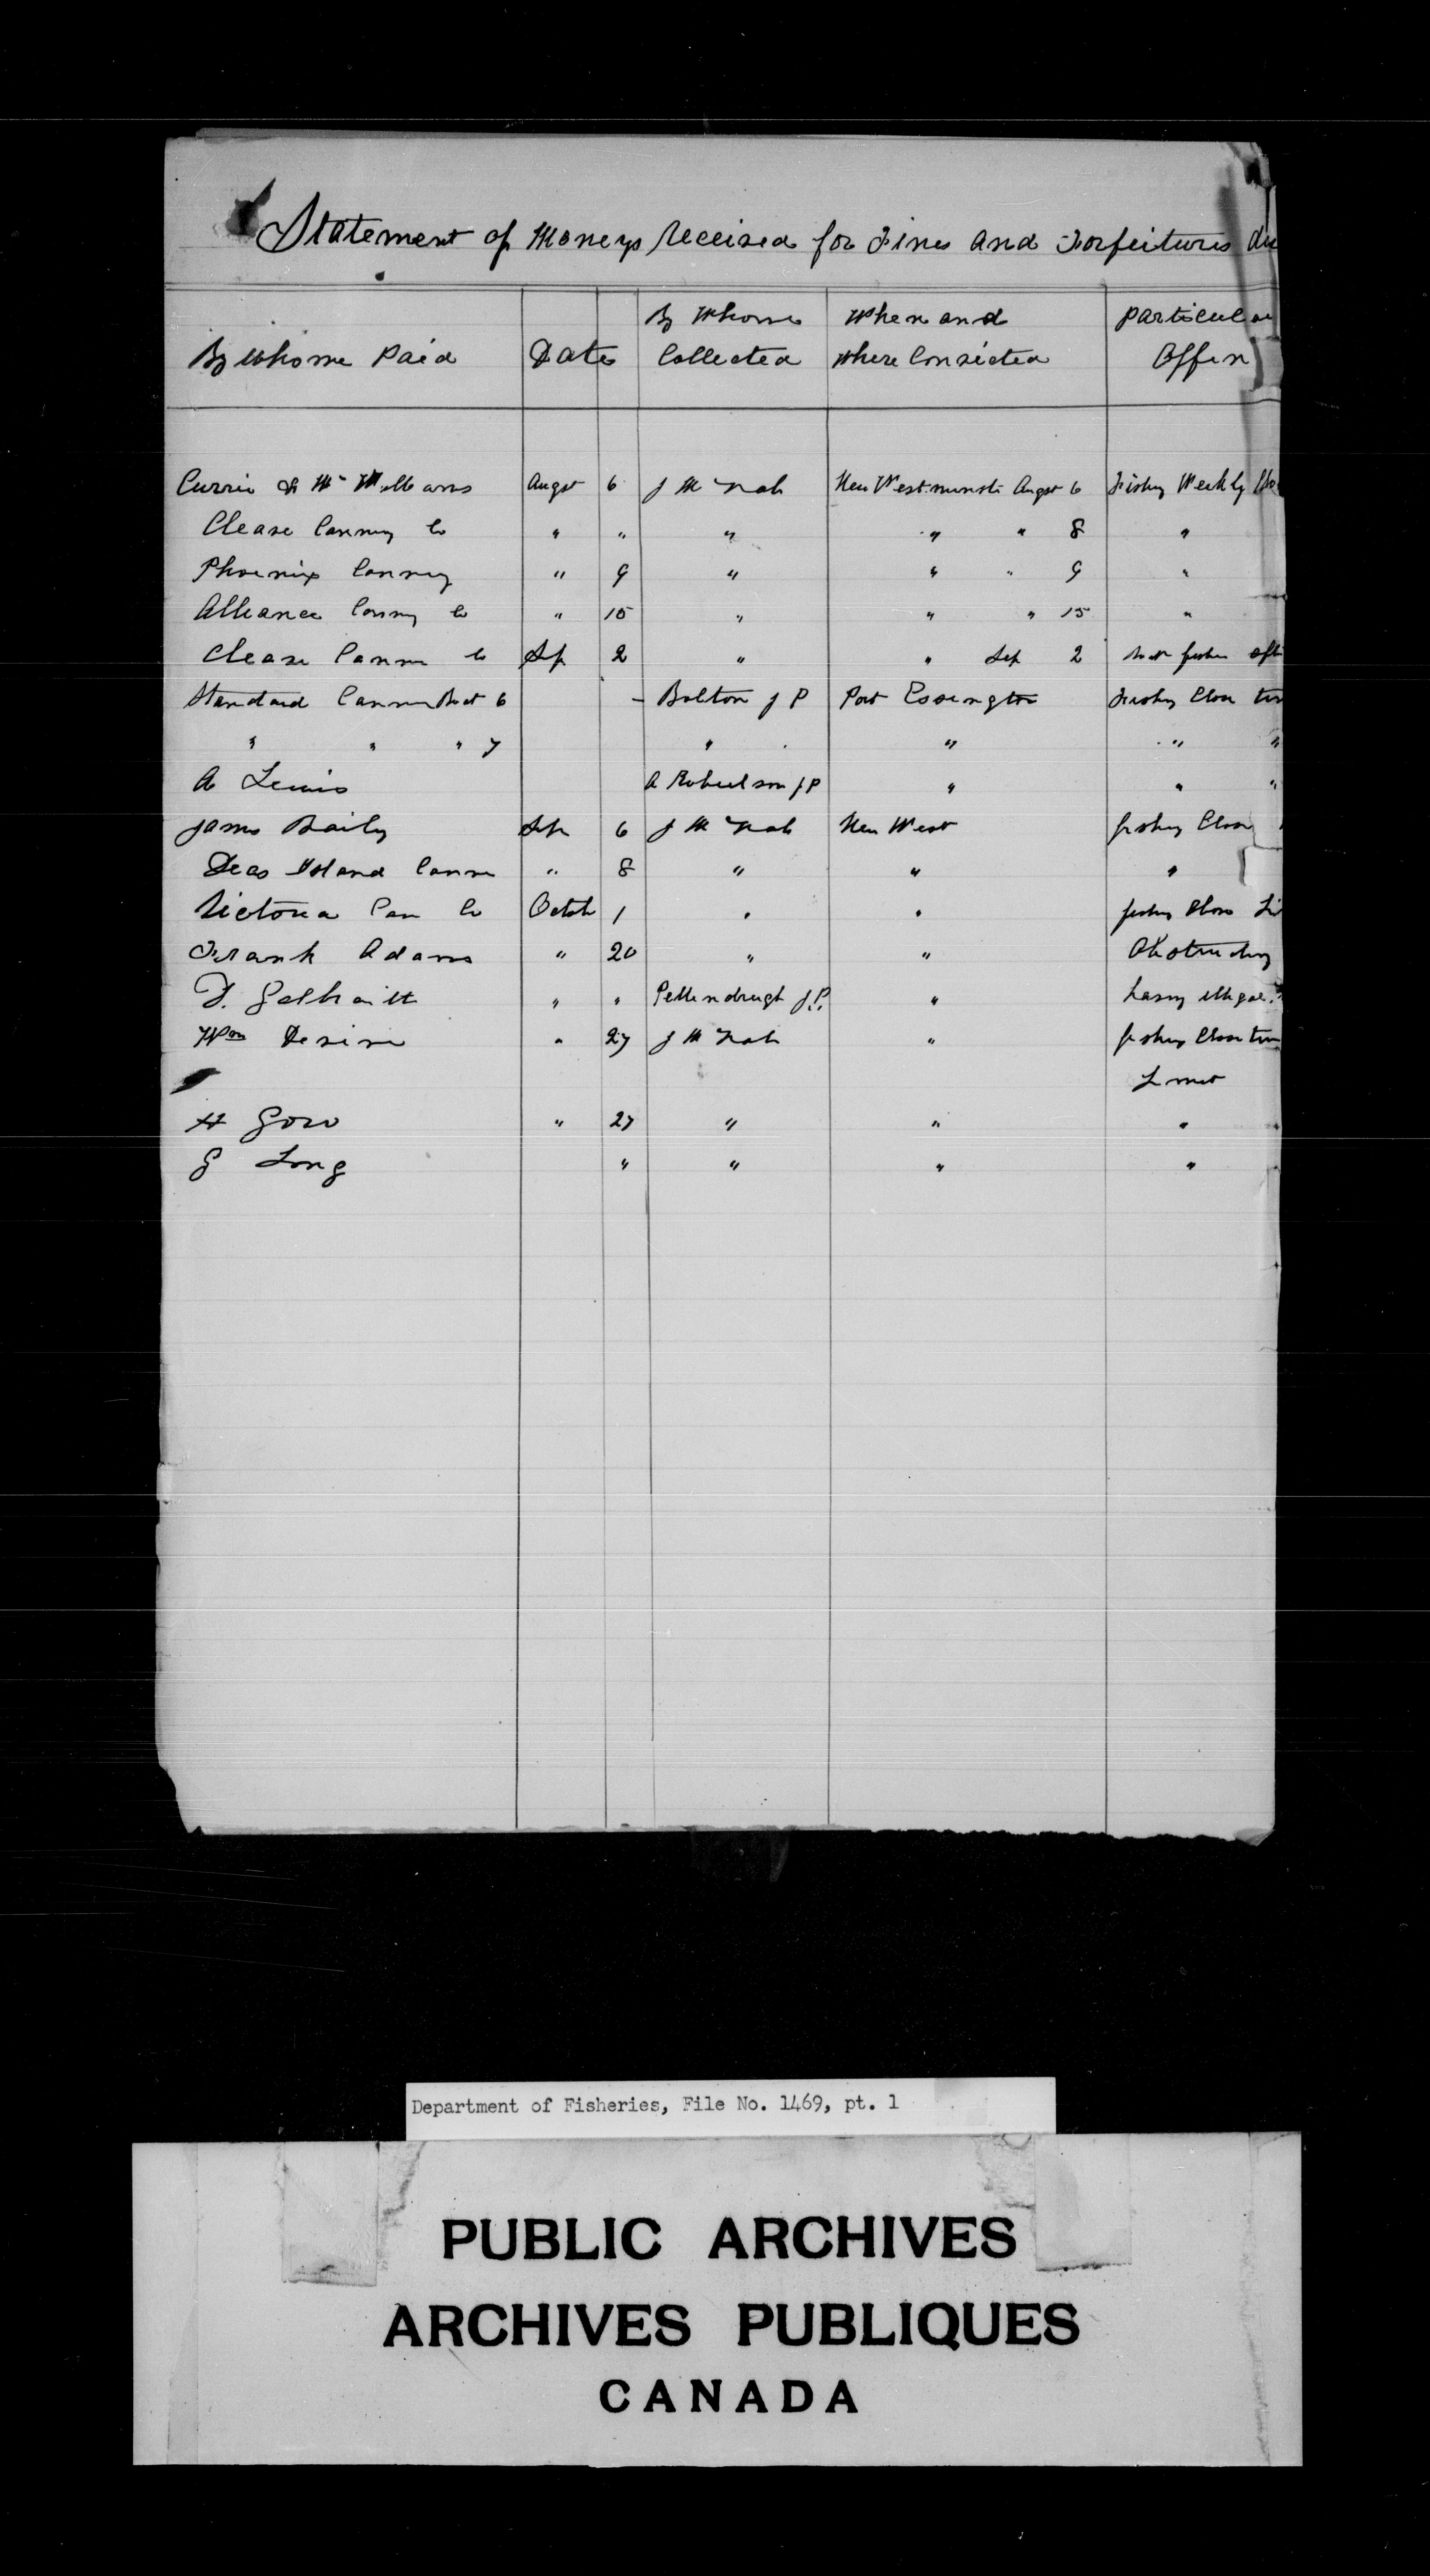 Statement of Moneys Received for Fines and Forfeitures du
By Whome Paid Date By Whome Collected When and Where Convicted Particular Offen
Currie & McWilliams Augst 6 J M Nab New Westminste Augst 6 Fishing Weekly Clo
Clease Canning Co " " " " " 8 "
Phoenix Canning " 9 " " " 9 "
Alliance Canning Co " 15 " " " 15 "
Clease Canne Co Sep 2 " " Sep 2
Standard Canner Boat 6 - Bolton J P Port Essington Fishing Close tim
" " " 7 " " " "
A Lewis A Robertson JP " " "
James Baily Sep 6 J M Nab New West fishing Close
Deas Island Canne " 8 " " "
Victoria Can Co Octob 1 " " fishing
Frank Adams " 20 " " Obstructing
" " Pettendrugh J.P. " having illegal
Wm Devine " 27 J M Nab " fishing Close tim
Limit
H Goro " 27 " " "
G Long " " " "
Department of Fisheries, File No. 1469, pt. 1
PUBLIC ARCHIVES
ARCHIVES PUBLIQUES
CANADA